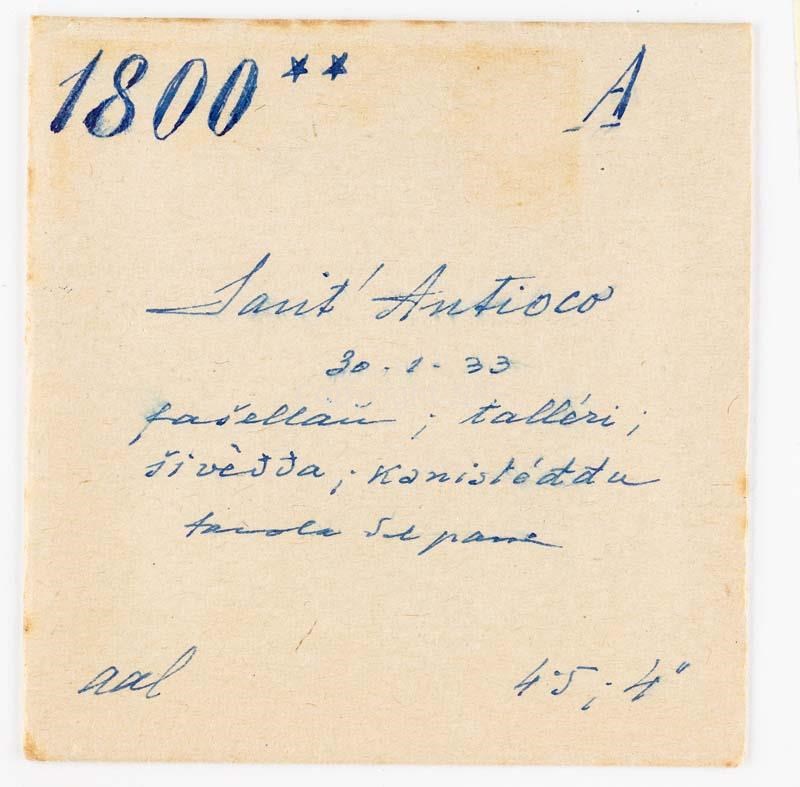 1800** A
Sant' Antioco
30-1-33
fašellaũ ; talléri ;
šivèđđa ; kanistéđđu
tavola del pane
aal 4·5 ; 4"